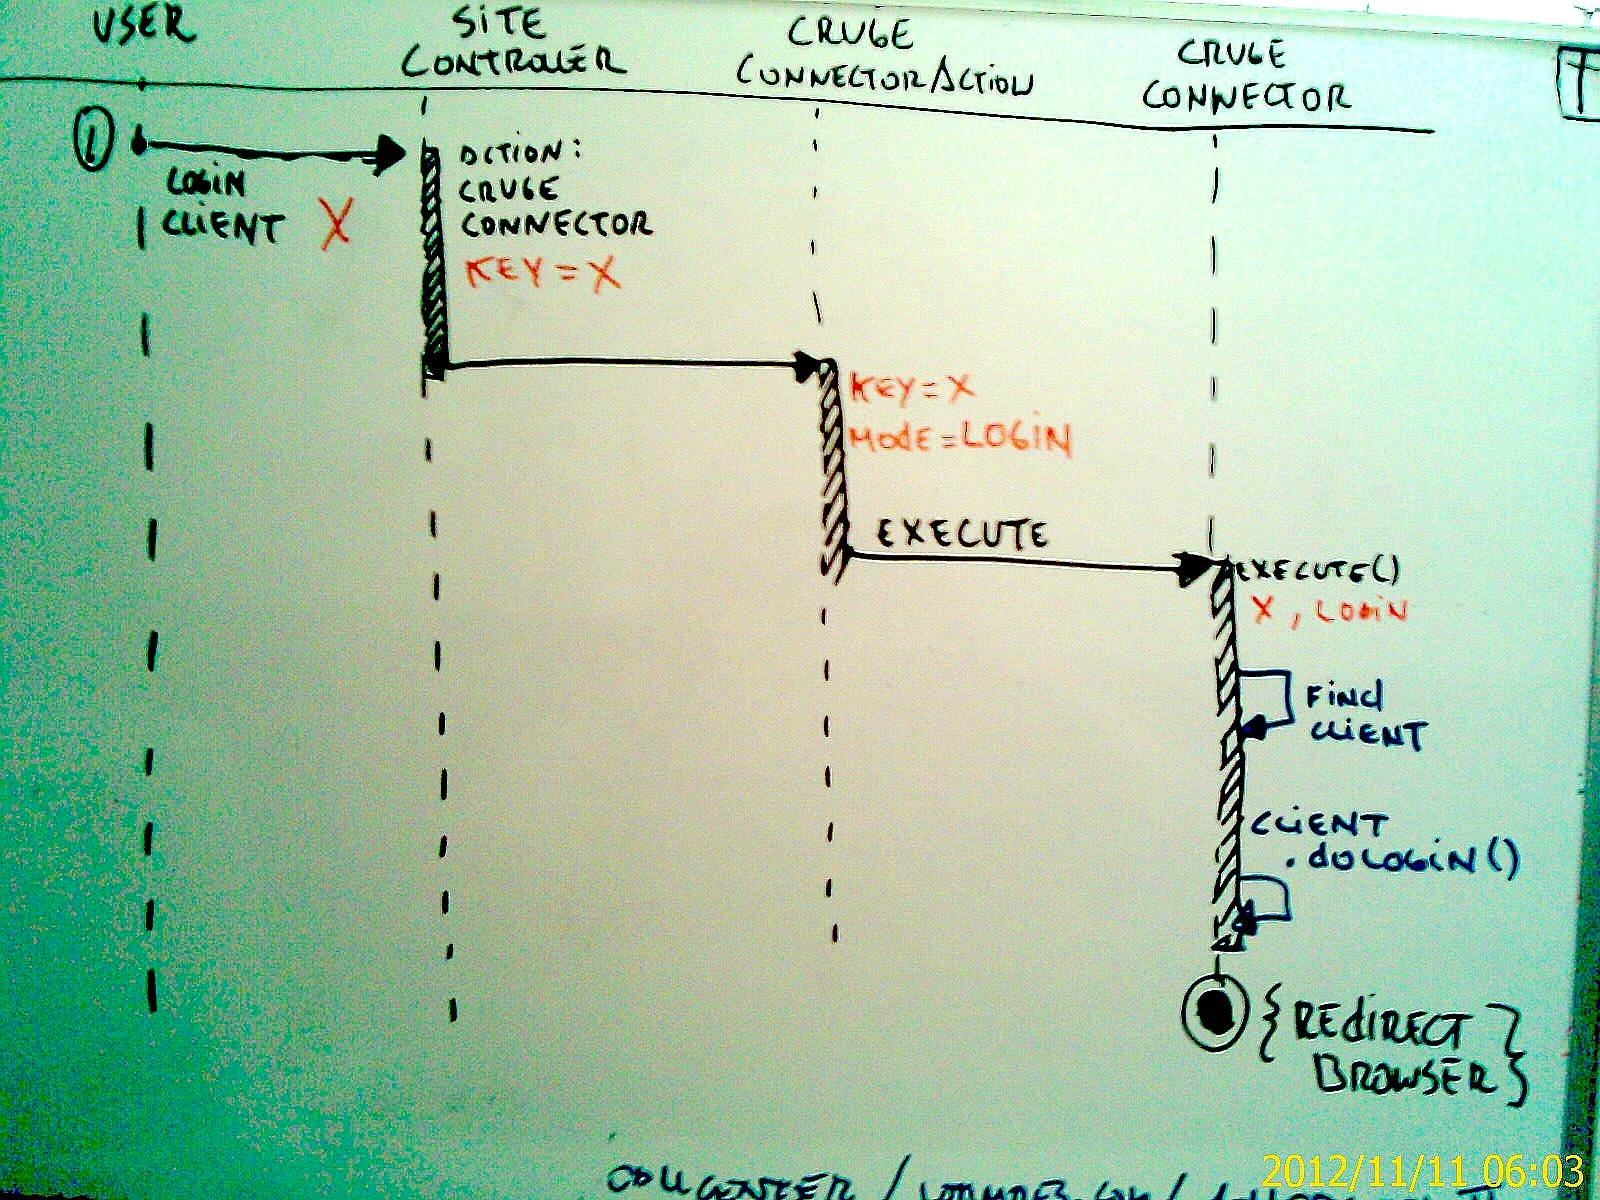 USER
SITE
CONTROLER
CRUGE
CONNECTORACTION
CRUGE
CONNECTOR
T
1
LOGIN
CLIENT X
ACTION:
CRUGE
CONNECTOR
KEY=X
KEY=X
MODE=LOGIN
EXECUTE
EXECUTE()
X, LOGIN
FIND
CLIENT
CLIENT
.doLOGIN()
{REDIRECT
BROWSER}
2012/11/11 06:03